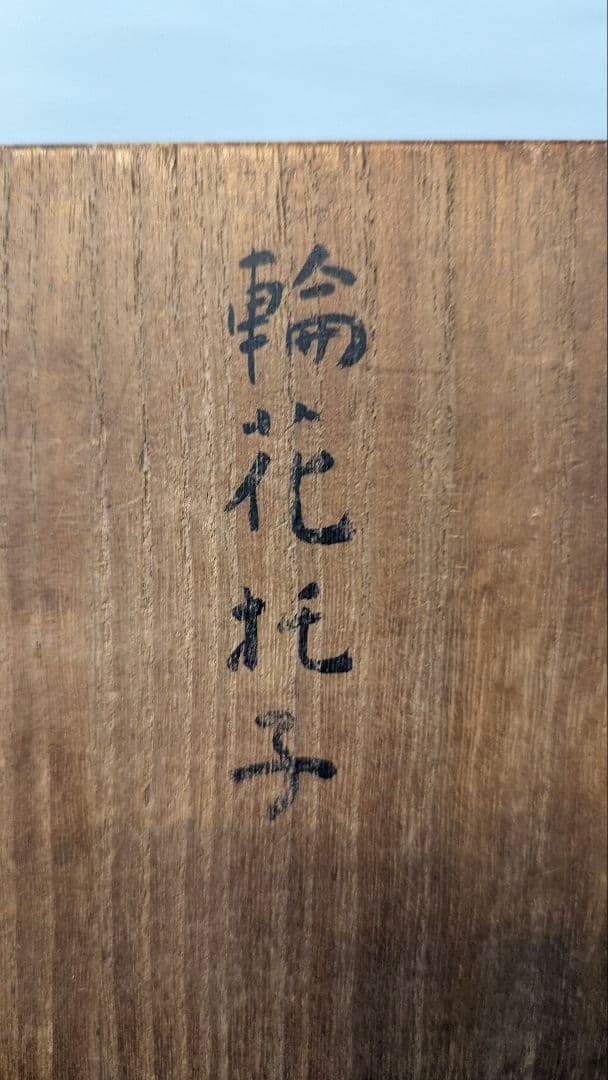 輪花托子